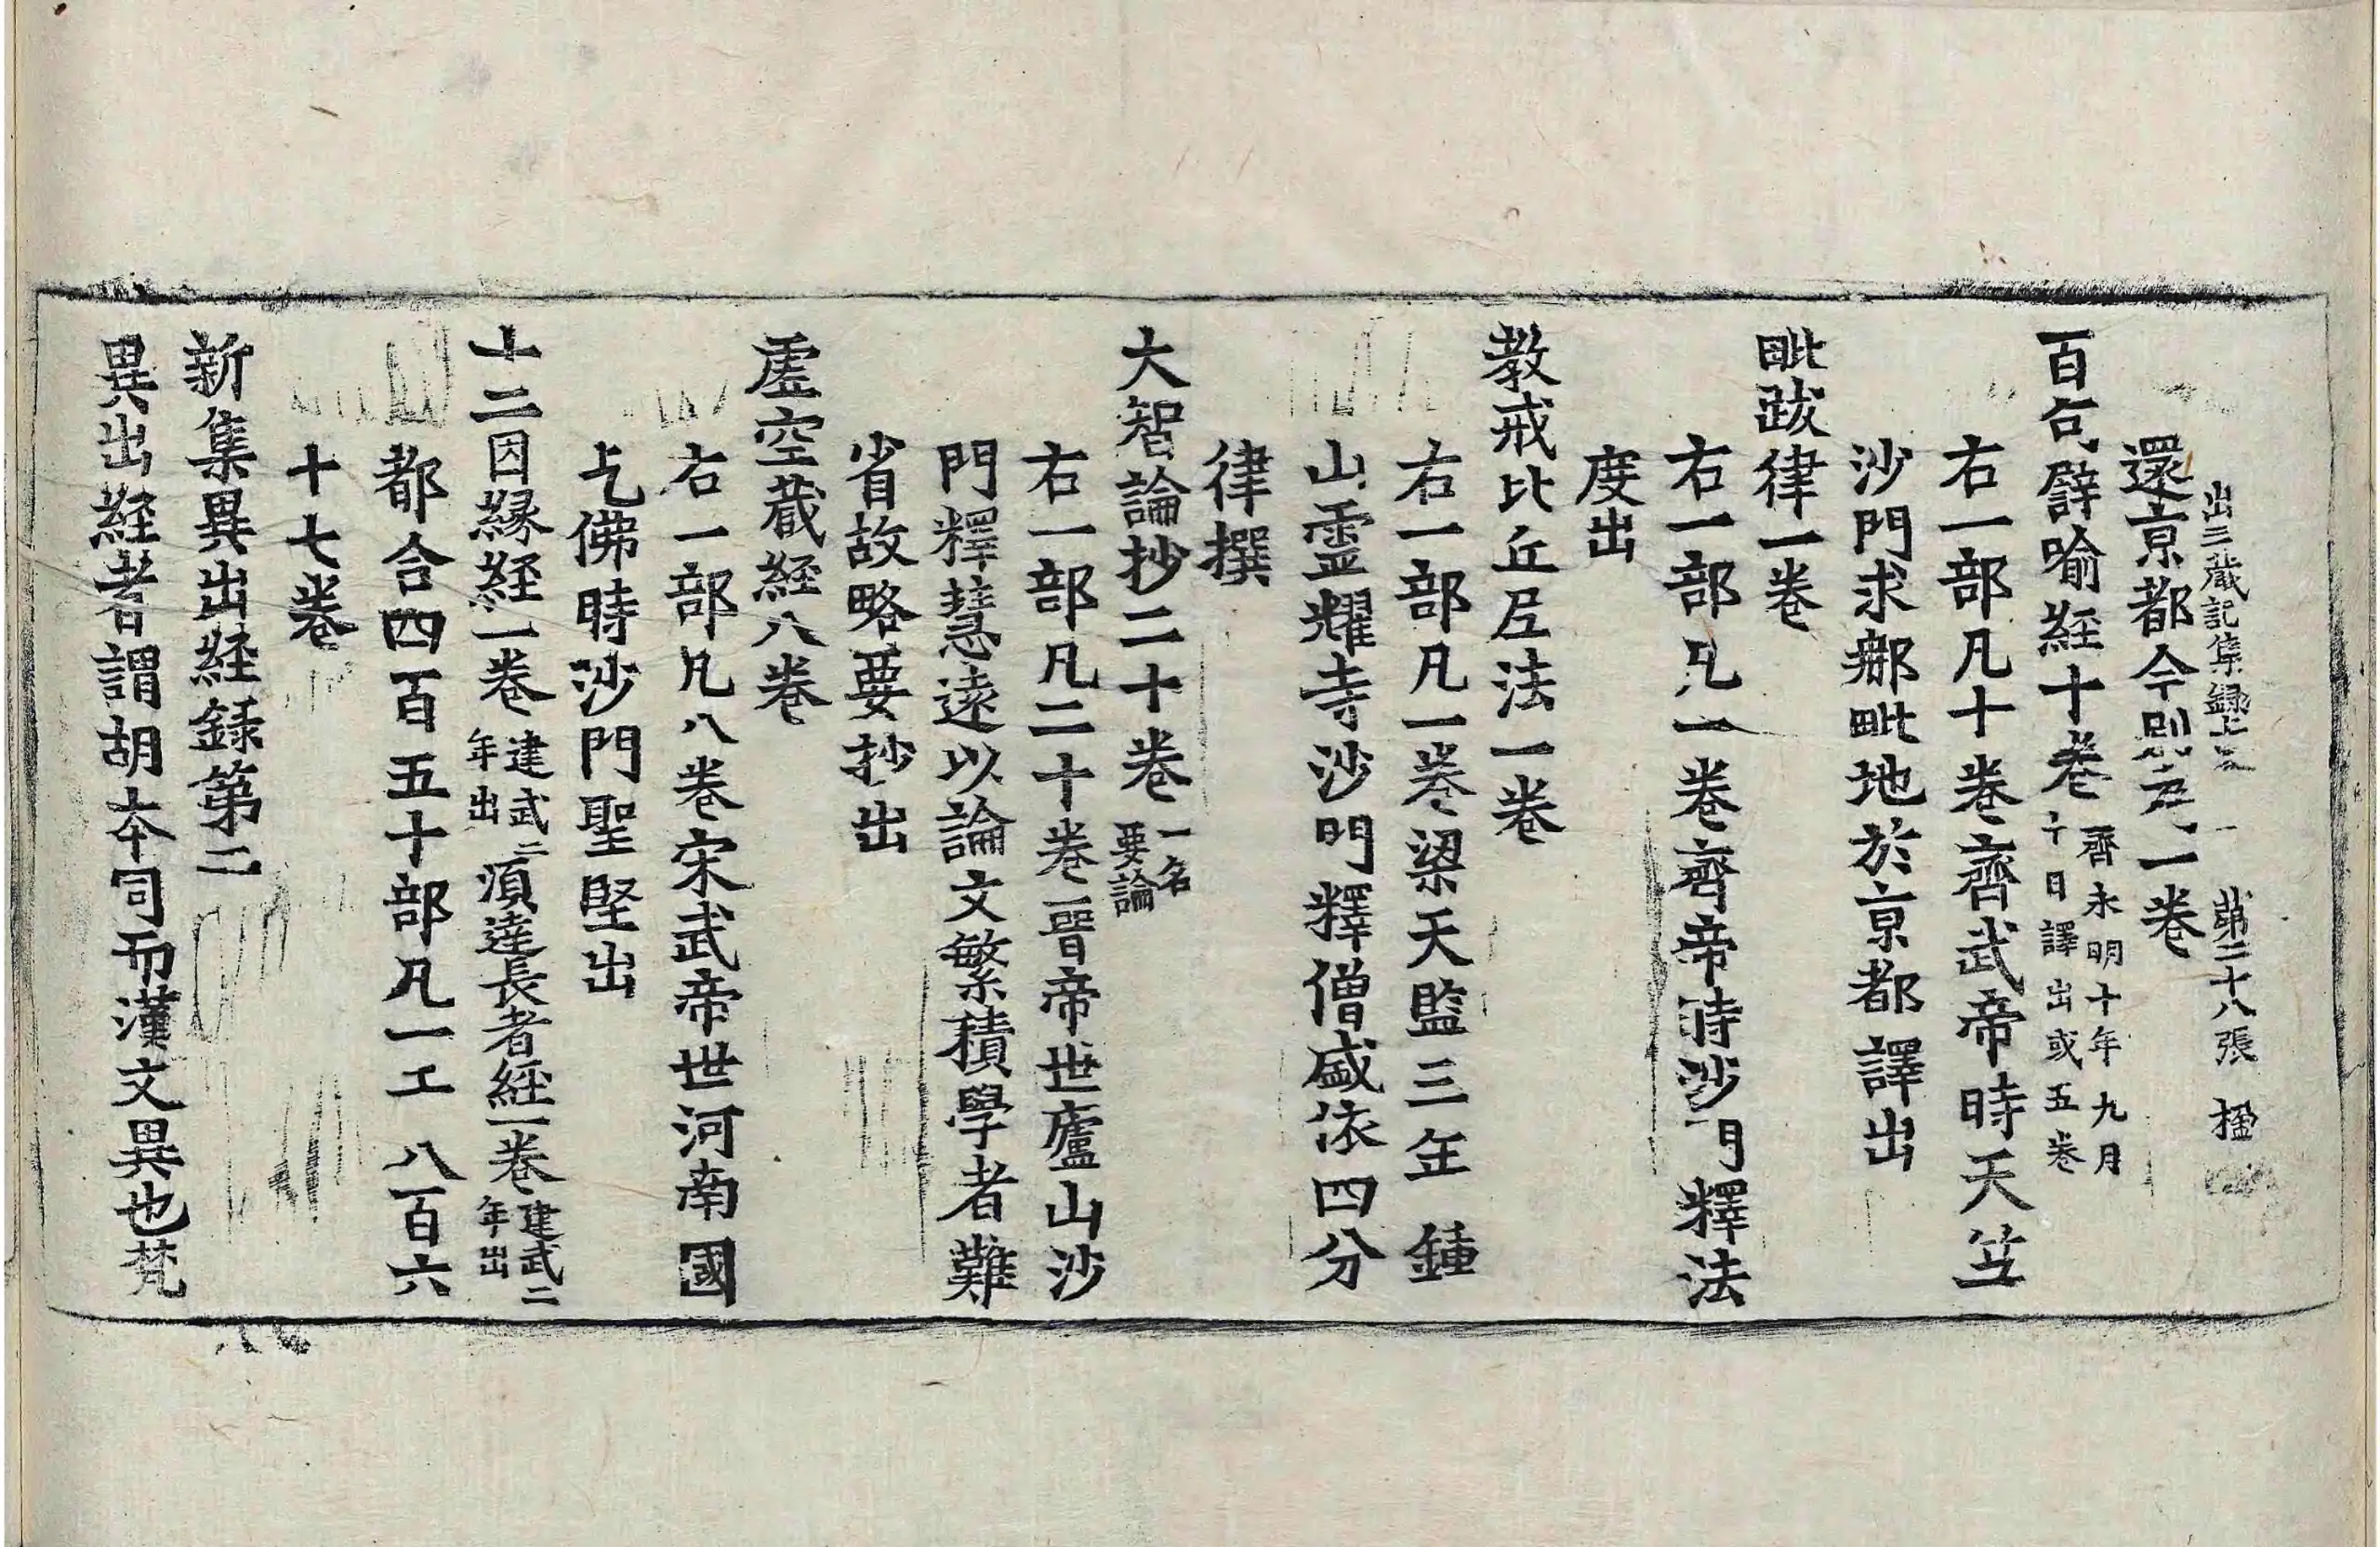 出三藏記集録 第二十八張 楹
還京都今別為一卷
百句譬喻經十卷 齊永明十年九月十日譯出或五卷
右一部凡十卷齊武帝時天竺
沙門求鄉毗地於京都譯出
毗跋律一卷
右一部凡一卷齊帝時沙門釋法
度出
教戒比丘尼法一卷
右一部凡一卷梁天監三年 鍾
山靈耀寺沙門釋僧盛依四分
律撰
大智論抄二十卷 一名要論
右一部凡二十卷晉帝世廬山沙
門釋慧遠以論文繁積學者難
省故略要抄出
虛空藏經八卷
右一部凡八卷宋武帝世河南國
乞佛時沙門聖堅出
十二因緣經一卷 建武二年出 須達長者經一卷 建武二年出
都合四百五十部凡一 八百六
十七卷
新集異出經録第二
異出經者謂胡本同而漢文異也梵